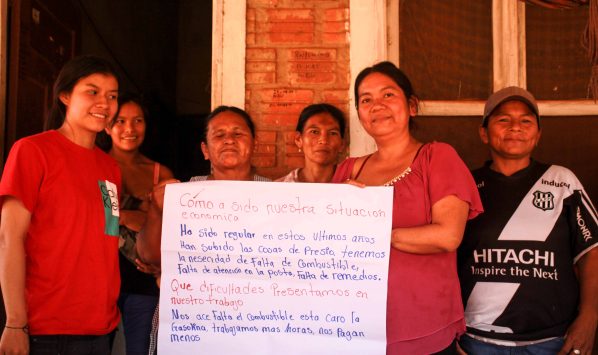 Cómo a sido nuestra situacion
economica
Ha sido regular en estos ultimos años
Han subido las cosas de Presio, tenemos
la nesecidad de Falta de Combustible,
Falta de atencion en la posta, Falta de remedios.
Que dificultades Presentamos en
nuestro trabajo
Nos ace Falta el combustible esta caro la
Gasolina, trabajamos mas horas, nos Pagan
menos
inducol
HITACHI
Inspire the Next